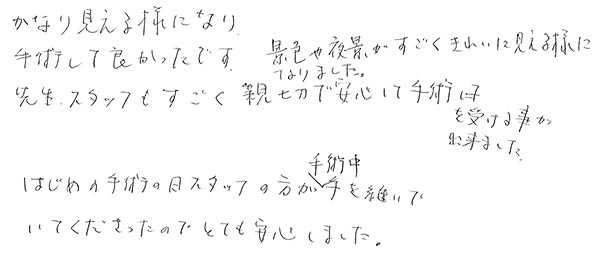 かなり見える様になり
手術して良かったです。景色や夜景がすごくきれいに見える様に
なりました。
先生、スタッフもすごく親切で安心して手術
を受ける事が
出来ました。
手術中
はじめの手術の日スタッフの方が手を継いで
いてくださったのでとても安心しました。